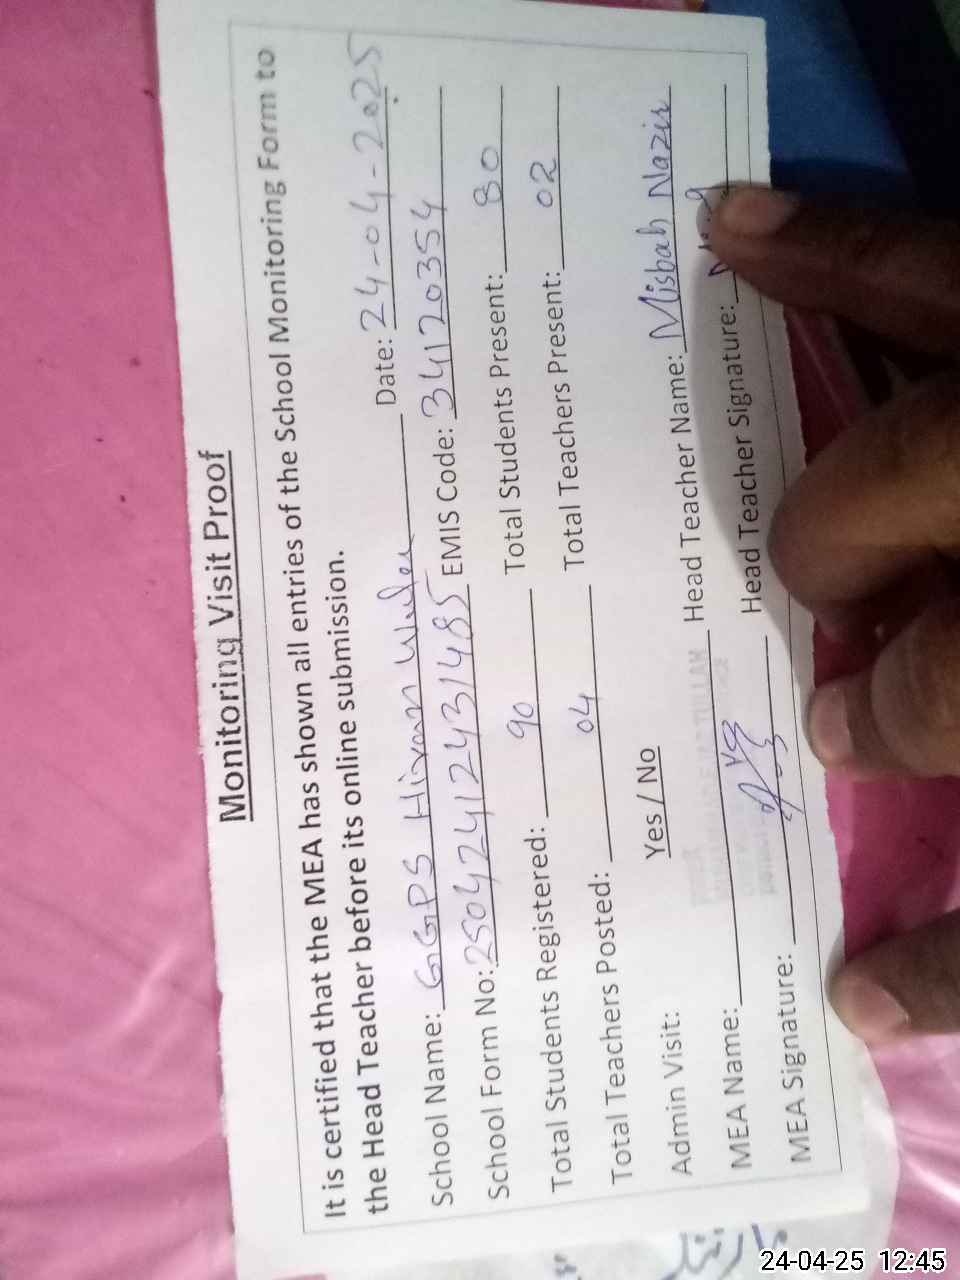 Monitoring Visit Proof
It is certified that the MEA has shown all entries of the School Monitoring Form to
the Head Teacher before its online submission.
School Name: GGPS Date: 24-04-2025
School Form No: 25042412431485 EMIS Code: 34120354
Total Students Registered: 90 Total Students Present: 80
Total Teachers Posted: 04 Total Teachers Present: 02
Admin Visit: Yes / No
MEA Name: Head Teacher Name: Misbah Nazir
MEA Signature: Head Teacher Signature:
24-04-25 12:45